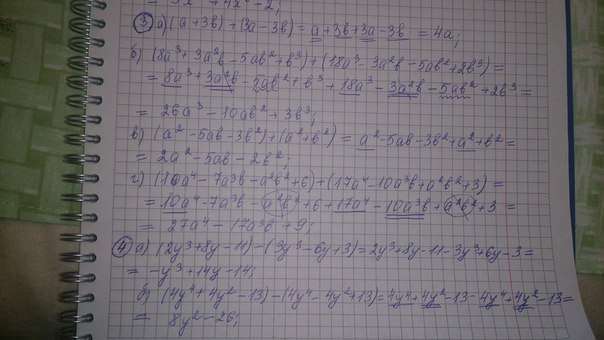 = 3x + 4x² - 2;
③ а) (a+3b) + (3a-3b) = a+3b+3a-3b = 4a;
б) (8a³+3a²b-5ab²+b³) + (18a³-3a²b-5ab²+2b³) =
= 8a³+3a²b-5ab²+b³+18a³-3a²b-5ab²+2b³ =
= 26a³-10ab²+3b³;
в) (a²-5ab-3b²)+(a²+b²) = a²-5ab-3b²+a²+b² =
= 2a²-5ab-2b²;
г) (10a⁴-7a³b-a²b²+6)+(17a⁴-10a³b+a²b²+3) =
= 10a⁴-7a³b-a²b²+6+17a⁴-10a³b+a²b²+3 =
= 27a⁴-17a³b+9;
④ а) (2y³+8y-11)-(3y³-6y+3)=2y³+8y-11-3y³+6y-3=
= -y³+14y-14;
б) (4y⁴+4y²-13)-(4y⁴-4y²+13)=4y⁴+4y²-13-4y⁴+4y²-13=
= 8y²-26;